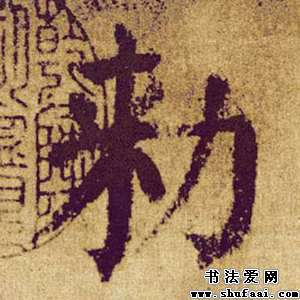 勑
书法爱网
www.shufaai.com